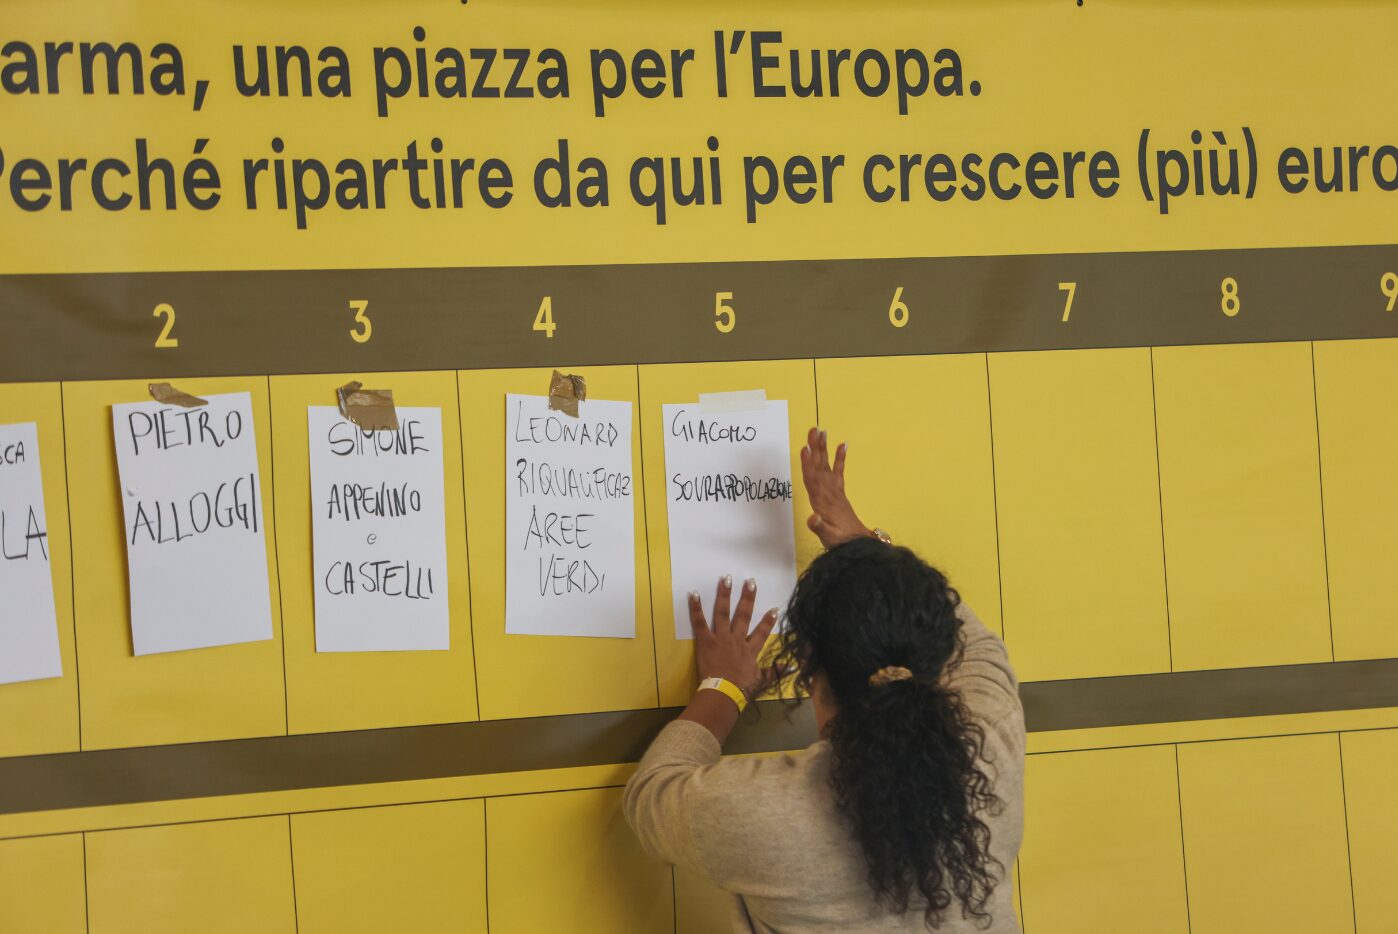 arma, una piazza per l'Europa.
Perché ripartire da qui per crescere (più) euro
2 3 4 5 6 7 8 9
SCA
LA
PIETRO
ALLOGGI
SIMONE
APPENINO
e
CASTELLI
LEONARD
RIQUALIFICAZ
AREE
VERDI
GIACOMO
SOVRAPPOPOLAZIONE